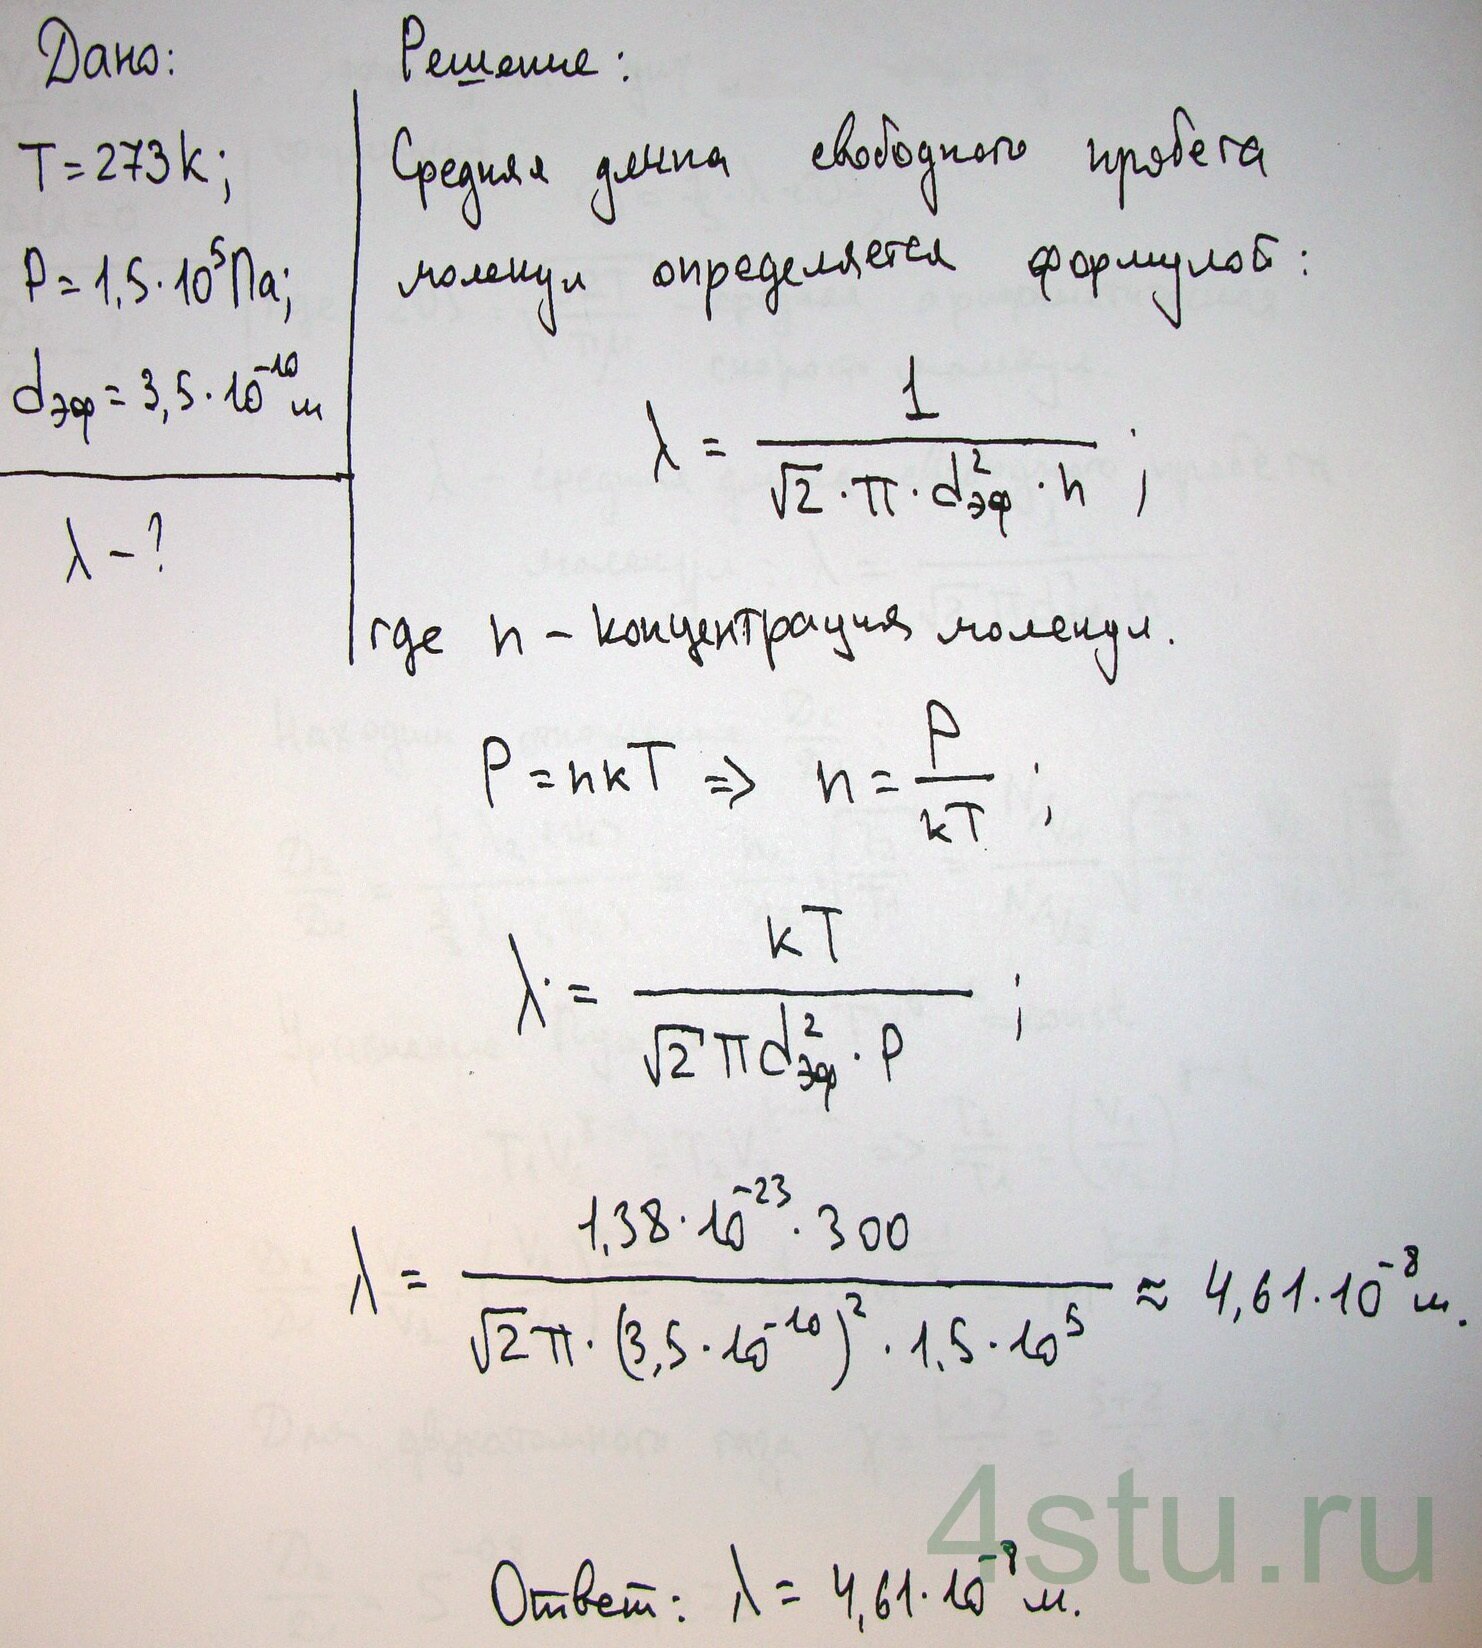 Дано:
T = 273 K;
P = 1,5 · 10⁵ Па;
dэф = 3,5 · 10⁻¹⁰ м
λ – ?
Решение:
Средняя длина свободного пробега
молекул определяется формулой:
λ = 1 / (√2 · π · dэф² · n) ;
где n – концентрация молекул.
P = nkT ⇒ n = P / kT ;
λ = kT / (√2 π dэф² · P) ;
λ = (1,38 · 10⁻²³ · 300) / (√2 π · (3,5 · 10⁻¹⁰)² · 1,5 · 10⁵) ≈ 4,61 · 10⁻⁸ м.
4stu.ru
Ответ: λ = 4,61 · 10⁻⁸ м.